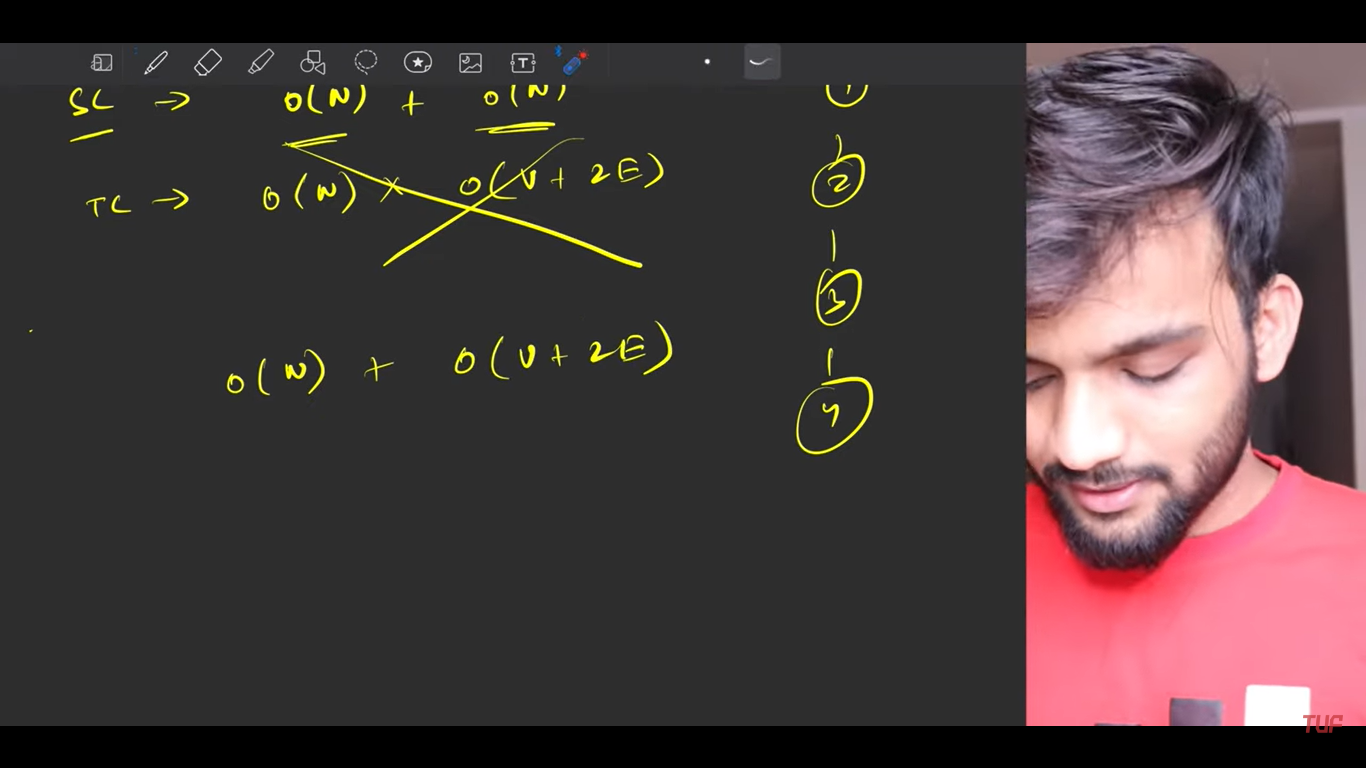 SC → O(N) + O(N)
TC → O(N) × O(V + 2E)
O(N) + O(V + 2E)
1
2
3
4
T
TUF